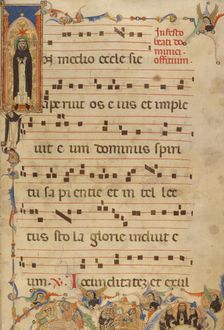 In festo
beati do
minici
officium.
In medio eccle sie
aperuit os eius et imple
uit eum dominus spiri
tu sapientie et in tel lec
tus stola glorie induit e
um. Iocunditatez et exul